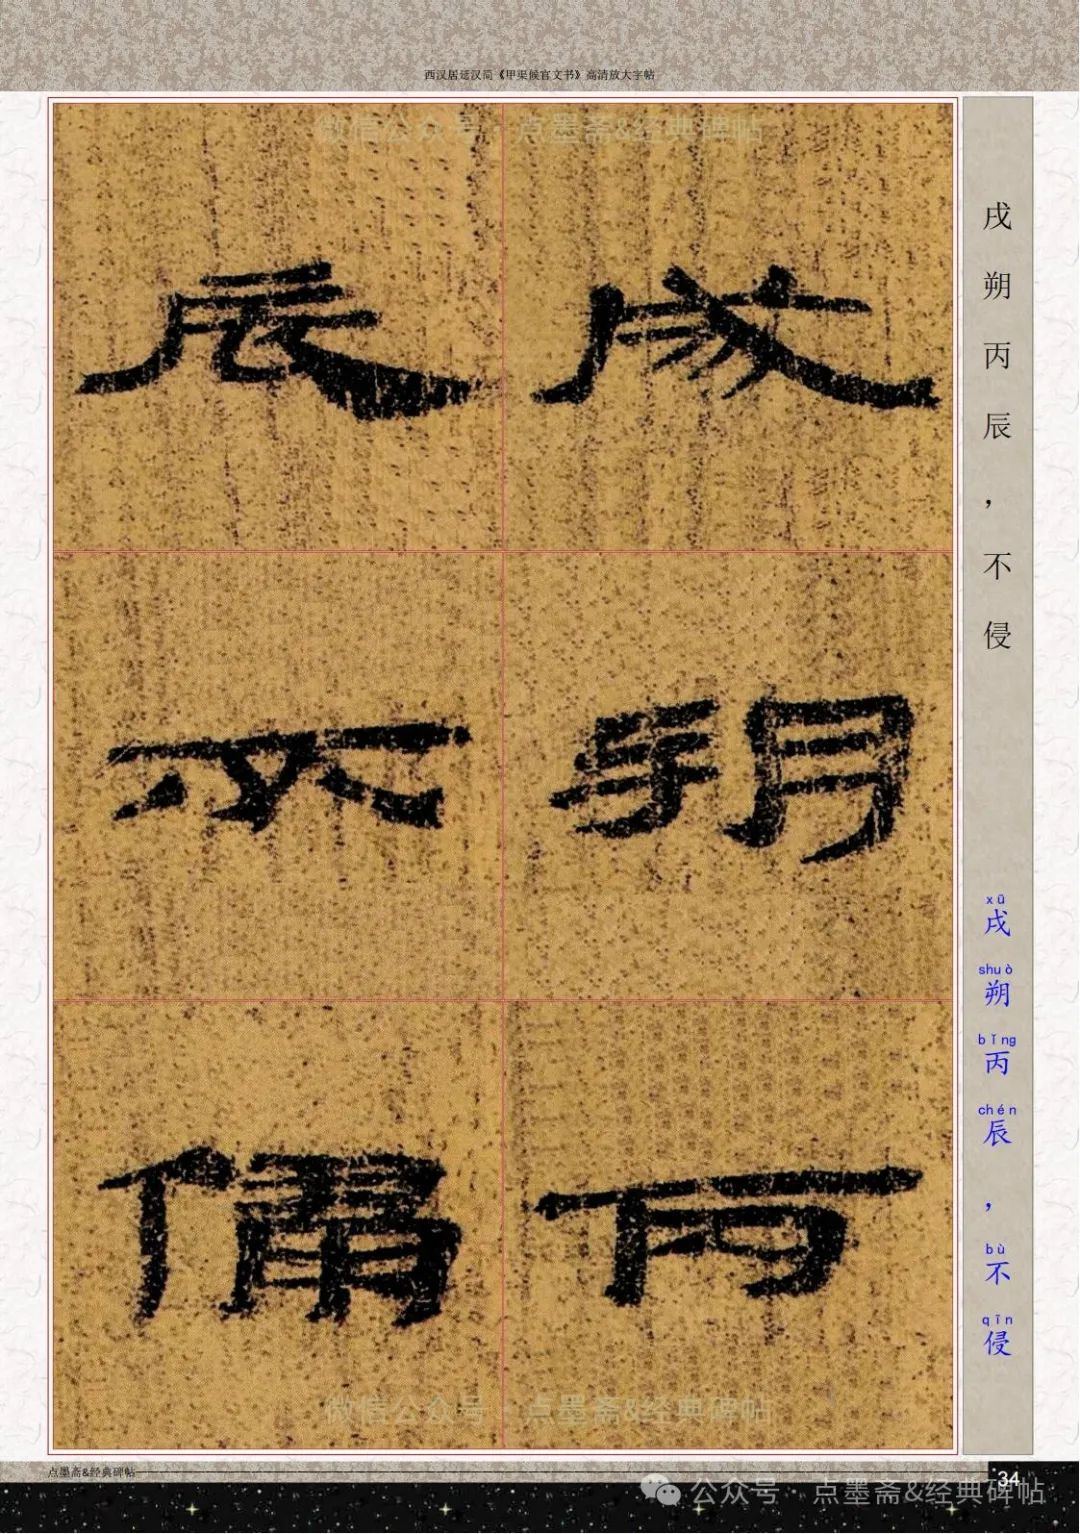 西汉居延汉简《甲渠候官文书》高清放大字帖
微信公众号·点墨斋&经典碑帖
戌朔丙
辰不侵
戌朔丙辰，不侵
xū shuò bǐng chén bù qīn
戌朔丙辰，不侵
微信公众号·点墨斋&经典碑帖
点墨斋&经典碑帖
34
公众号·点墨斋&经典碑帖